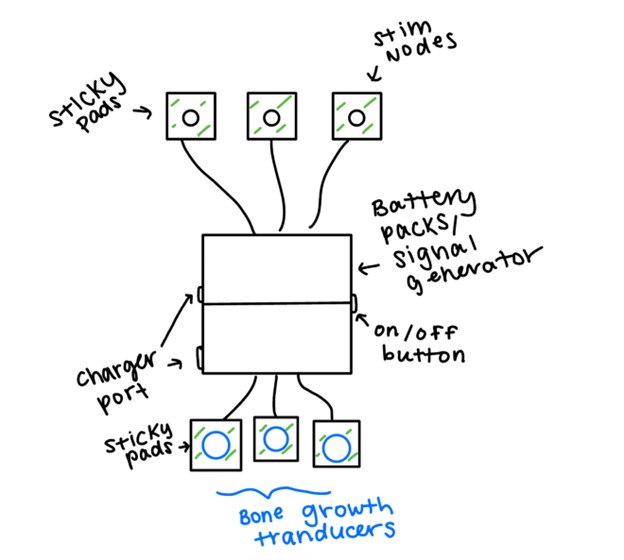 stim
nodes
sticky
pads
Battery
packs/
signal
generator
on/off
button
charger
port
sticky
pads
Bone growth
tranducers